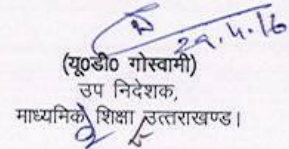 29.4.16
(यू०डी० गोस्वामी)
उप निदेशक,
माध्यमिक शिक्षा उत्तराखण्ड।